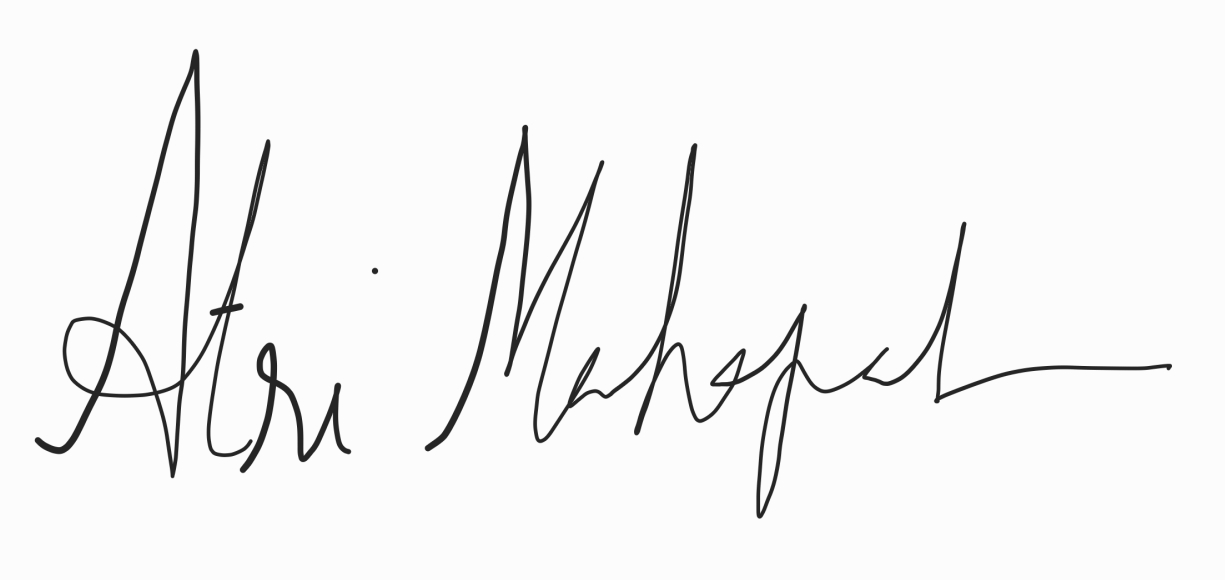 Atri Mahapat